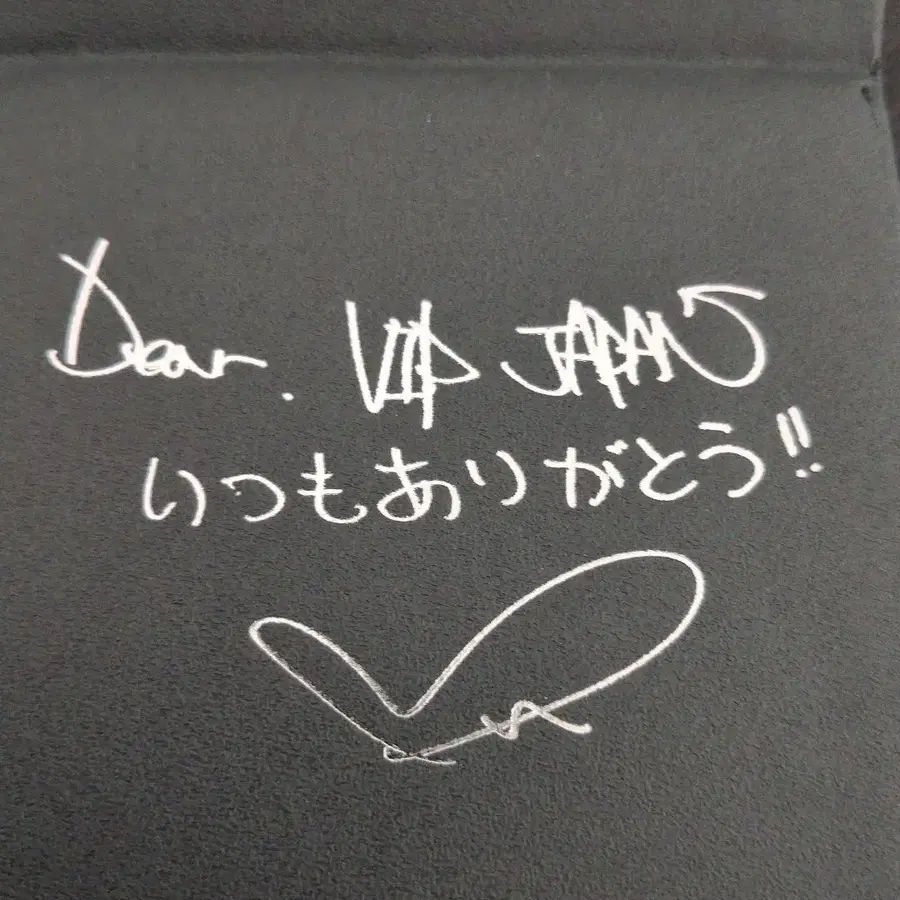 Dear. VIP JAPAN
いつもありがとう!!